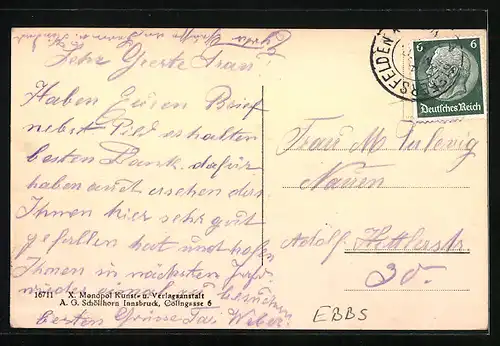 Liebe Grüße an Herrn u. Kinder
Sehr Geerte Frau!
Haben Euren Brief
nebst Bild erhalten
besten Dank dafür
haben auch ersehen das
Ihnen hier sehr gut
gefallen hat und hoffen
Ihnen im nächsten Jahr
wieder einmal besuchen
besten Grüsse Fam. Weber.
16711 X. Monopol Kunst- u. Verlagsanstalt
A. G. Schölhorn Innsbruck, Cölingasse 6
6 6
Deutsches Reich
ERSFELDEN
Frau M.
Nauen
Adolf Hittlerstr
20.
EBBS